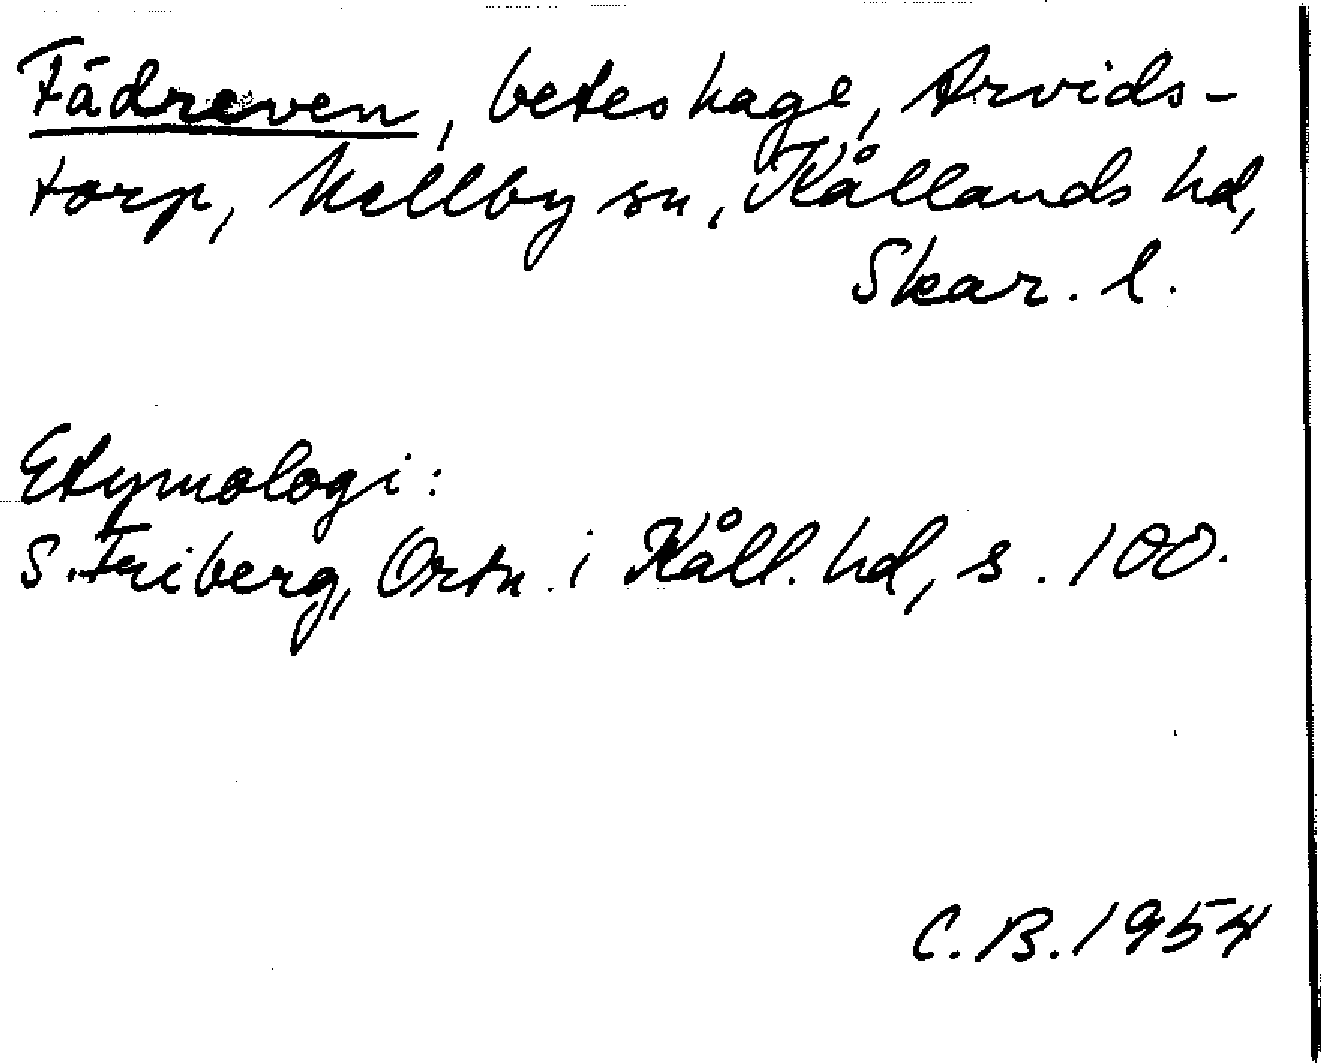 Fädreven, beteshage, Arvids-
torp, Mellby sn, Kållands hd,
Skar. l.
Etymologi:
S. Friberg, Ortn. i Kåll. hd, s. 100.
C. B. 1954